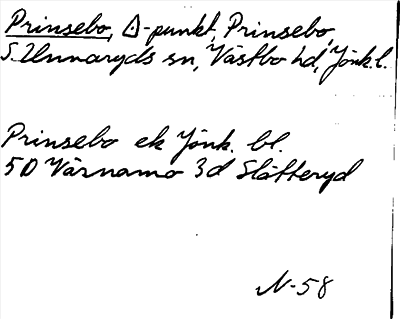 Prinsebo, Δ-punkt, Prinsebo,
S. Unnaryds sn, Västbo hd, Jönk. l.
Prinsebo ek Jönk. bl.
5D Värnamo 3d Slätteryd
N-58